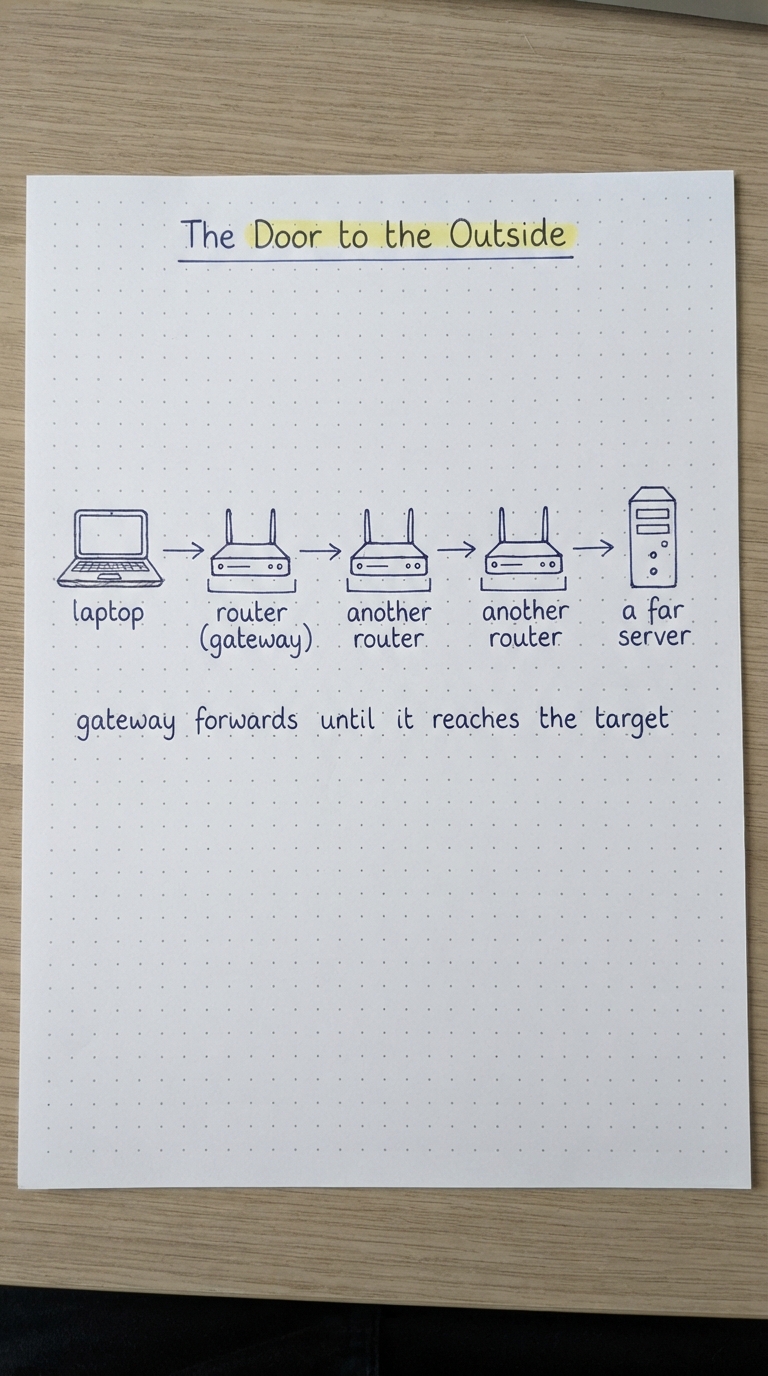 The Door to the Outside
laptop
router
(gateway)
another
router
another
router
a far
server
gateway forwards until it reaches the target